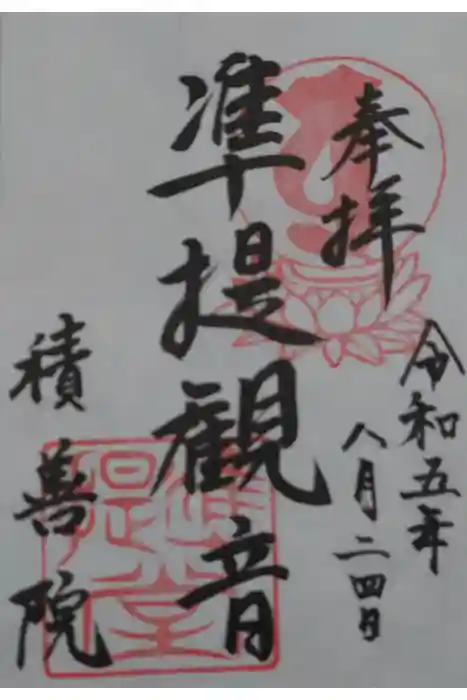 奉拝
令和五年
八月二四日
準提観音
積善院